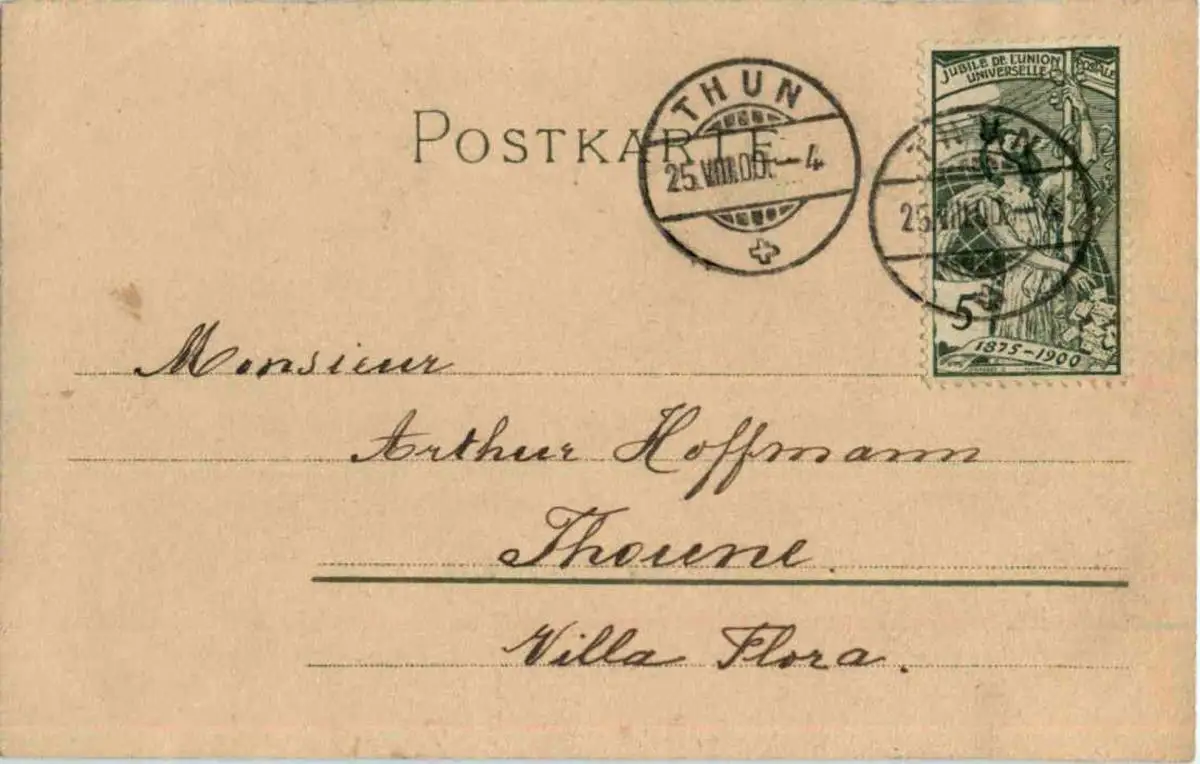 POSTKARTE
THUN
25.VIII.00.–4
JUBILE DE L'UNION POSTALE
UNIVERSELLE
THUN
25.VIII.00.–4
5
1875–1900
Monsieur
Arthur Hoffmann
Thoune.
Villa Flora.